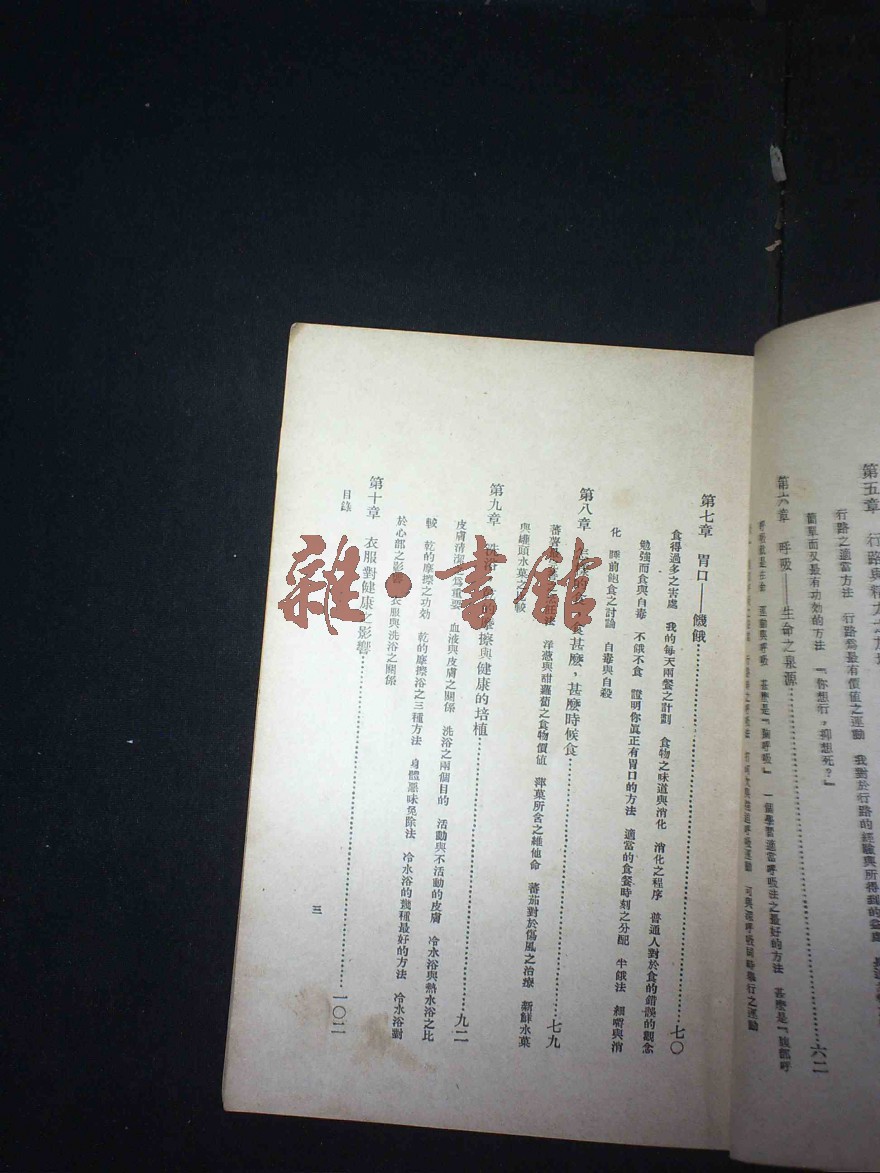 第五章 行路與精力之
行路之適當方法 行路爲最有價值之運動 我對於行路的經驗與所得到的
簡單而又最有功效的方法 『你想行，抑想死？』
第六章 呼吸——生命之泉源……六二
呼吸 運動與呼吸 甚麼是『胸呼吸』 一個學習適當呼吸法之最好的方法 甚麼是『腹部呼
第七章 胃口——饑餓……七〇
食得過多之害處 我的每天兩餐之計劃 食物之味道與消化 消化之程序 普通人對於食的錯誤的觀念
勉強而食與自毒 不餓不食 證明你眞正有胃口的方法 適當的食餐時刻之分配 半餓法 細嚼與消
化 睡前飽食之討論 自毒與自殺
第八章 食甚麼，甚麼時候食……七九
蕃薯 洋蔥與甜蘿蔔之食物價値 薄菓所含之維他命 蕃茄對於傷風之治療 新鮮水菓
與罐頭水菓之 較
第九章 洗浴 的摩擦與健康的培植……九二
皮膚淸潔 爲重要 血液與皮膚之關係 洗浴之兩個目的 活動與不活動的皮膚 冷水浴與熱水浴之比
較 乾的摩擦之功効 乾的摩擦浴之三種方法 身體臭味免除法 冷水浴的幾種最好的方法 冷水浴對
於心部之影響 衣服與洗浴之關係
第十章 衣服對健康之影響……一〇二
目錄
三
雜·書館